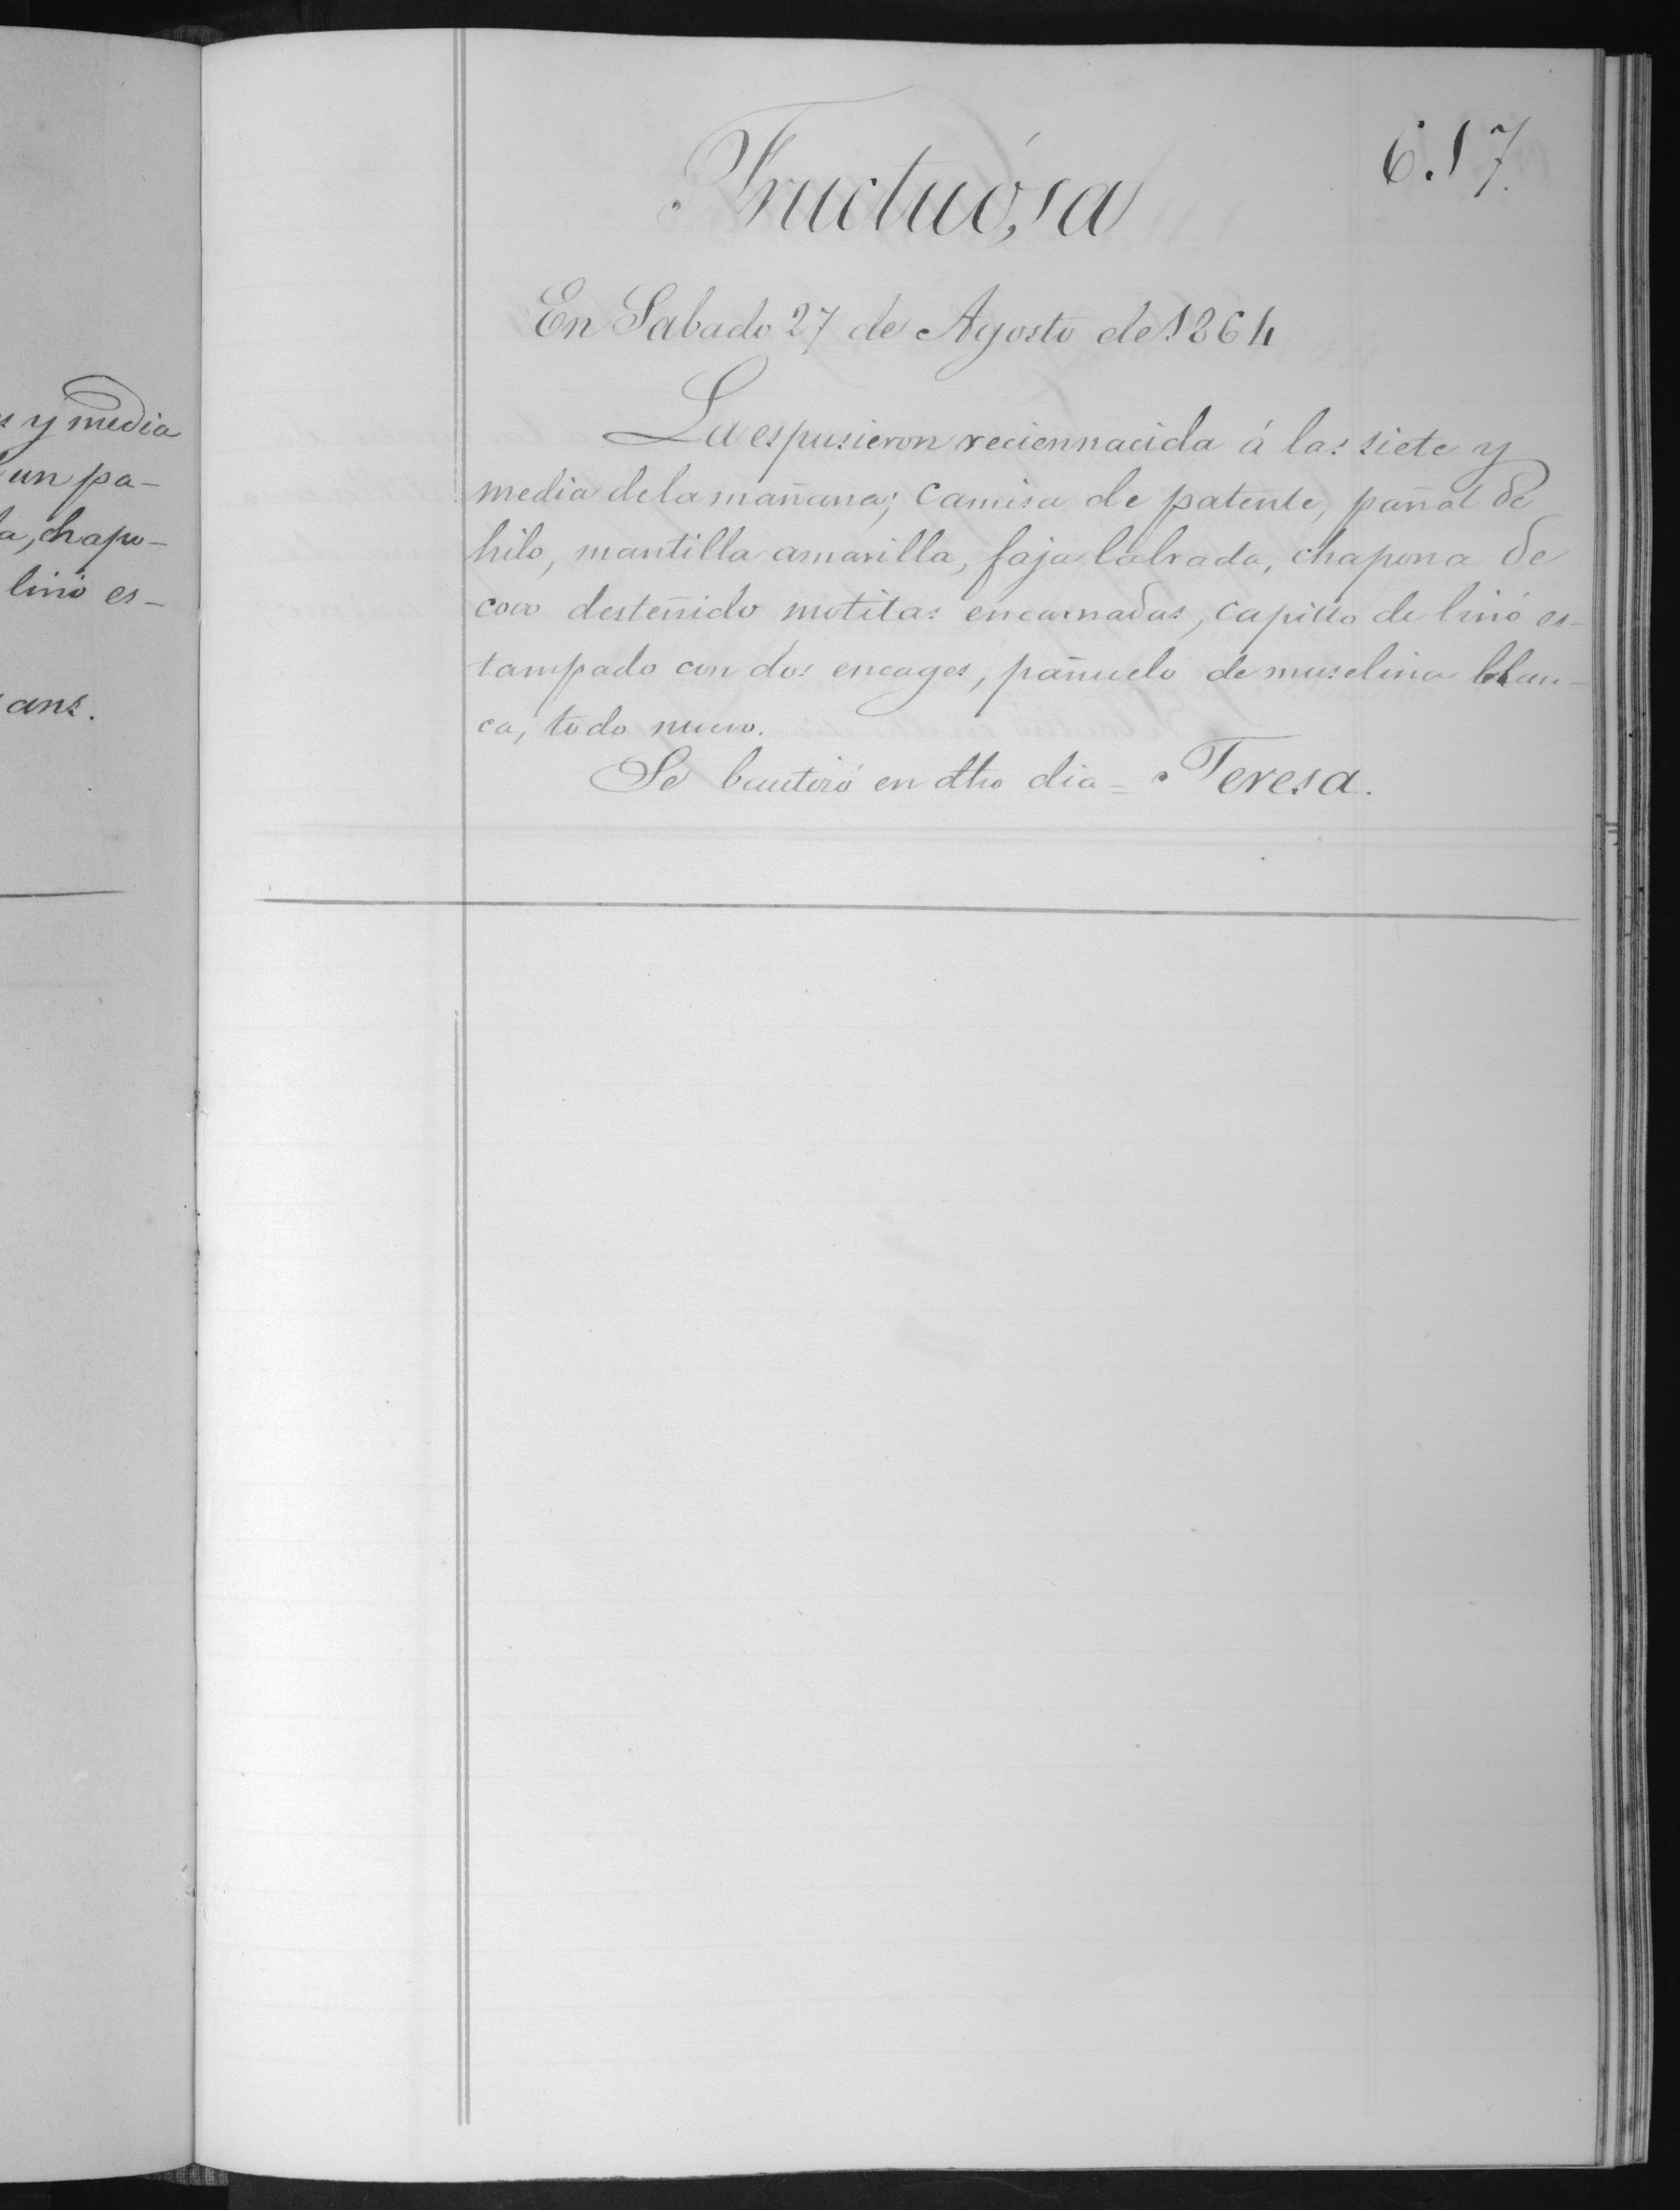 s y media
un pa-
a, chapo-
linó es-
ans.
617.
Fructuósa
En Sabado 27 de Agosto de 1864
La espusieron reciennacida á las siete y
media dela mañana; camisa de patente, pañal de
hilo, mantilla amarilla, faja labrada, chapona de
coco desteñido motitas encarnadas, capillo de linó es-
tampado con dos encages, pañuelo de muselina blan-
ca, todo nuevo.
Se bautizó en dho dia = Teresa.